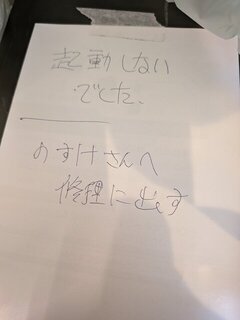 起動しない
でした。
のすけさんへ
修理に出す